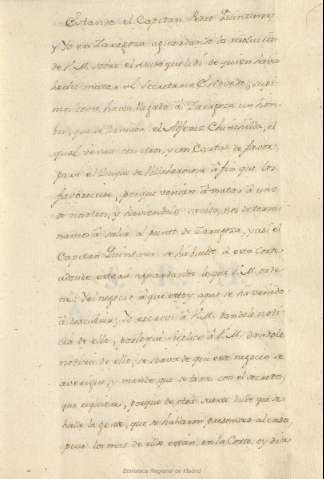 Estando el Capitan Pedro Quintana,
y Yo en Zaragoza aguardando la resolucion
de S. M. sobre el aviso que le di de quien havia
hecho matar al Secretario Escovedo, supi-
mos, como havia llegado à Zaragoza un hom-
bre, que se llamava el Alferez Chinchilla, el
qual venia con otros, y con Cartas de favor
para el Duque de Villahermosa à fin que los
favoreciese, porque venian à matar à uno
de nosotros, y haviendolo oido, nos determi-
namos à salir al punto de Zaragoza, y asi el
Capitan Quintana se ha buelto à esta Corte
adonde està aguardando lo que S. M. orde-
ne. Del negocio à que estoy aqui se ha venido
à descubrir, Yo escrevi à S. M. dandole noti-
cia de ello, por lo que suplico à S. M. dandole
noticia de ello, se sirva de que este negocio se
averigue, y mande que se trate con el secreto,
que requiere, porque de otra suerte dudo que se
halle la gente, que se hallaron presentes al caso,
pues los mas de ellos estan en la Corte, oy dia
Biblioteca Regional de Madrid